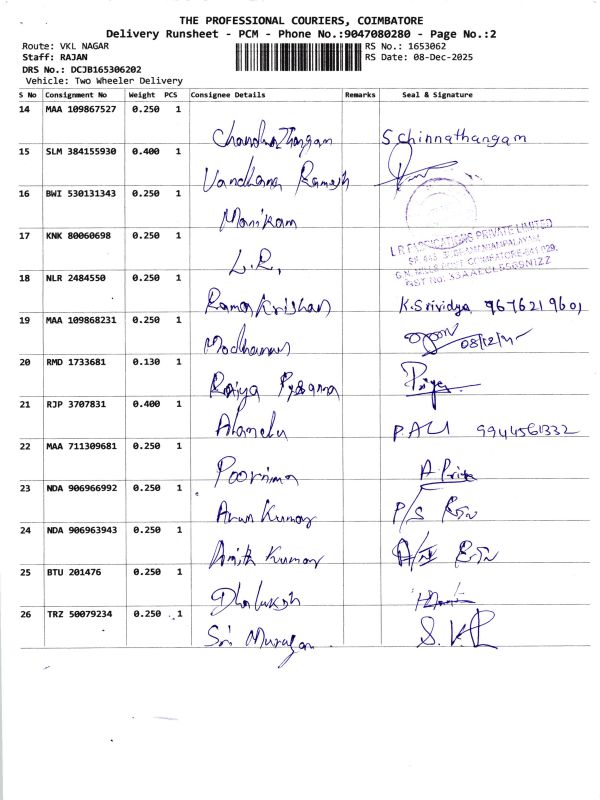 THE PROFESSIONAL COURIERS, COIMBATORE
Delivery Runsheet - PCM - Phone No.:9047080280 - Page No.:2
Route: VKL NAGAR
RS No.: 1653062
Staff: RAJAN
RS Date: 08-Dec-2025
DRS No.: DCJB165306202
Vehicle: Two Wheeler Delivery
S No Consignment No Weight PCS Consignee Details Remarks Seal & Signature
14 MAA 109867527 0.250 1
S Chinnathangam
15 SLM 384155930 0.400 1
Vandhana Ramesh
16 BWI 530131343 0.250 1
Manikam
17 KNK 80060698 0.250 1
L.R.
L R FABRICATIONS PRIVATE LIMITED
18 NLR 2484550 0.250 1
Ramakrishan K.Srividya 9676219601
19 MAA 109868231 0.250 1
08/12/
20 RMD 1733681 0.130 1
Priya
21 RJP 3707831 0.400 1
Alamelu P.ALI 9944561332
22 MAA 711309681 0.250 1
Poornima A Priya
23 NDA 906966992 0.250 1
Arun Kumar P/S
24 NDA 906963943 0.250 1
Amith Kumar
25 BTU 201476 0.250 1
26 TRZ 50079234 0.250 1
Sri Murugan